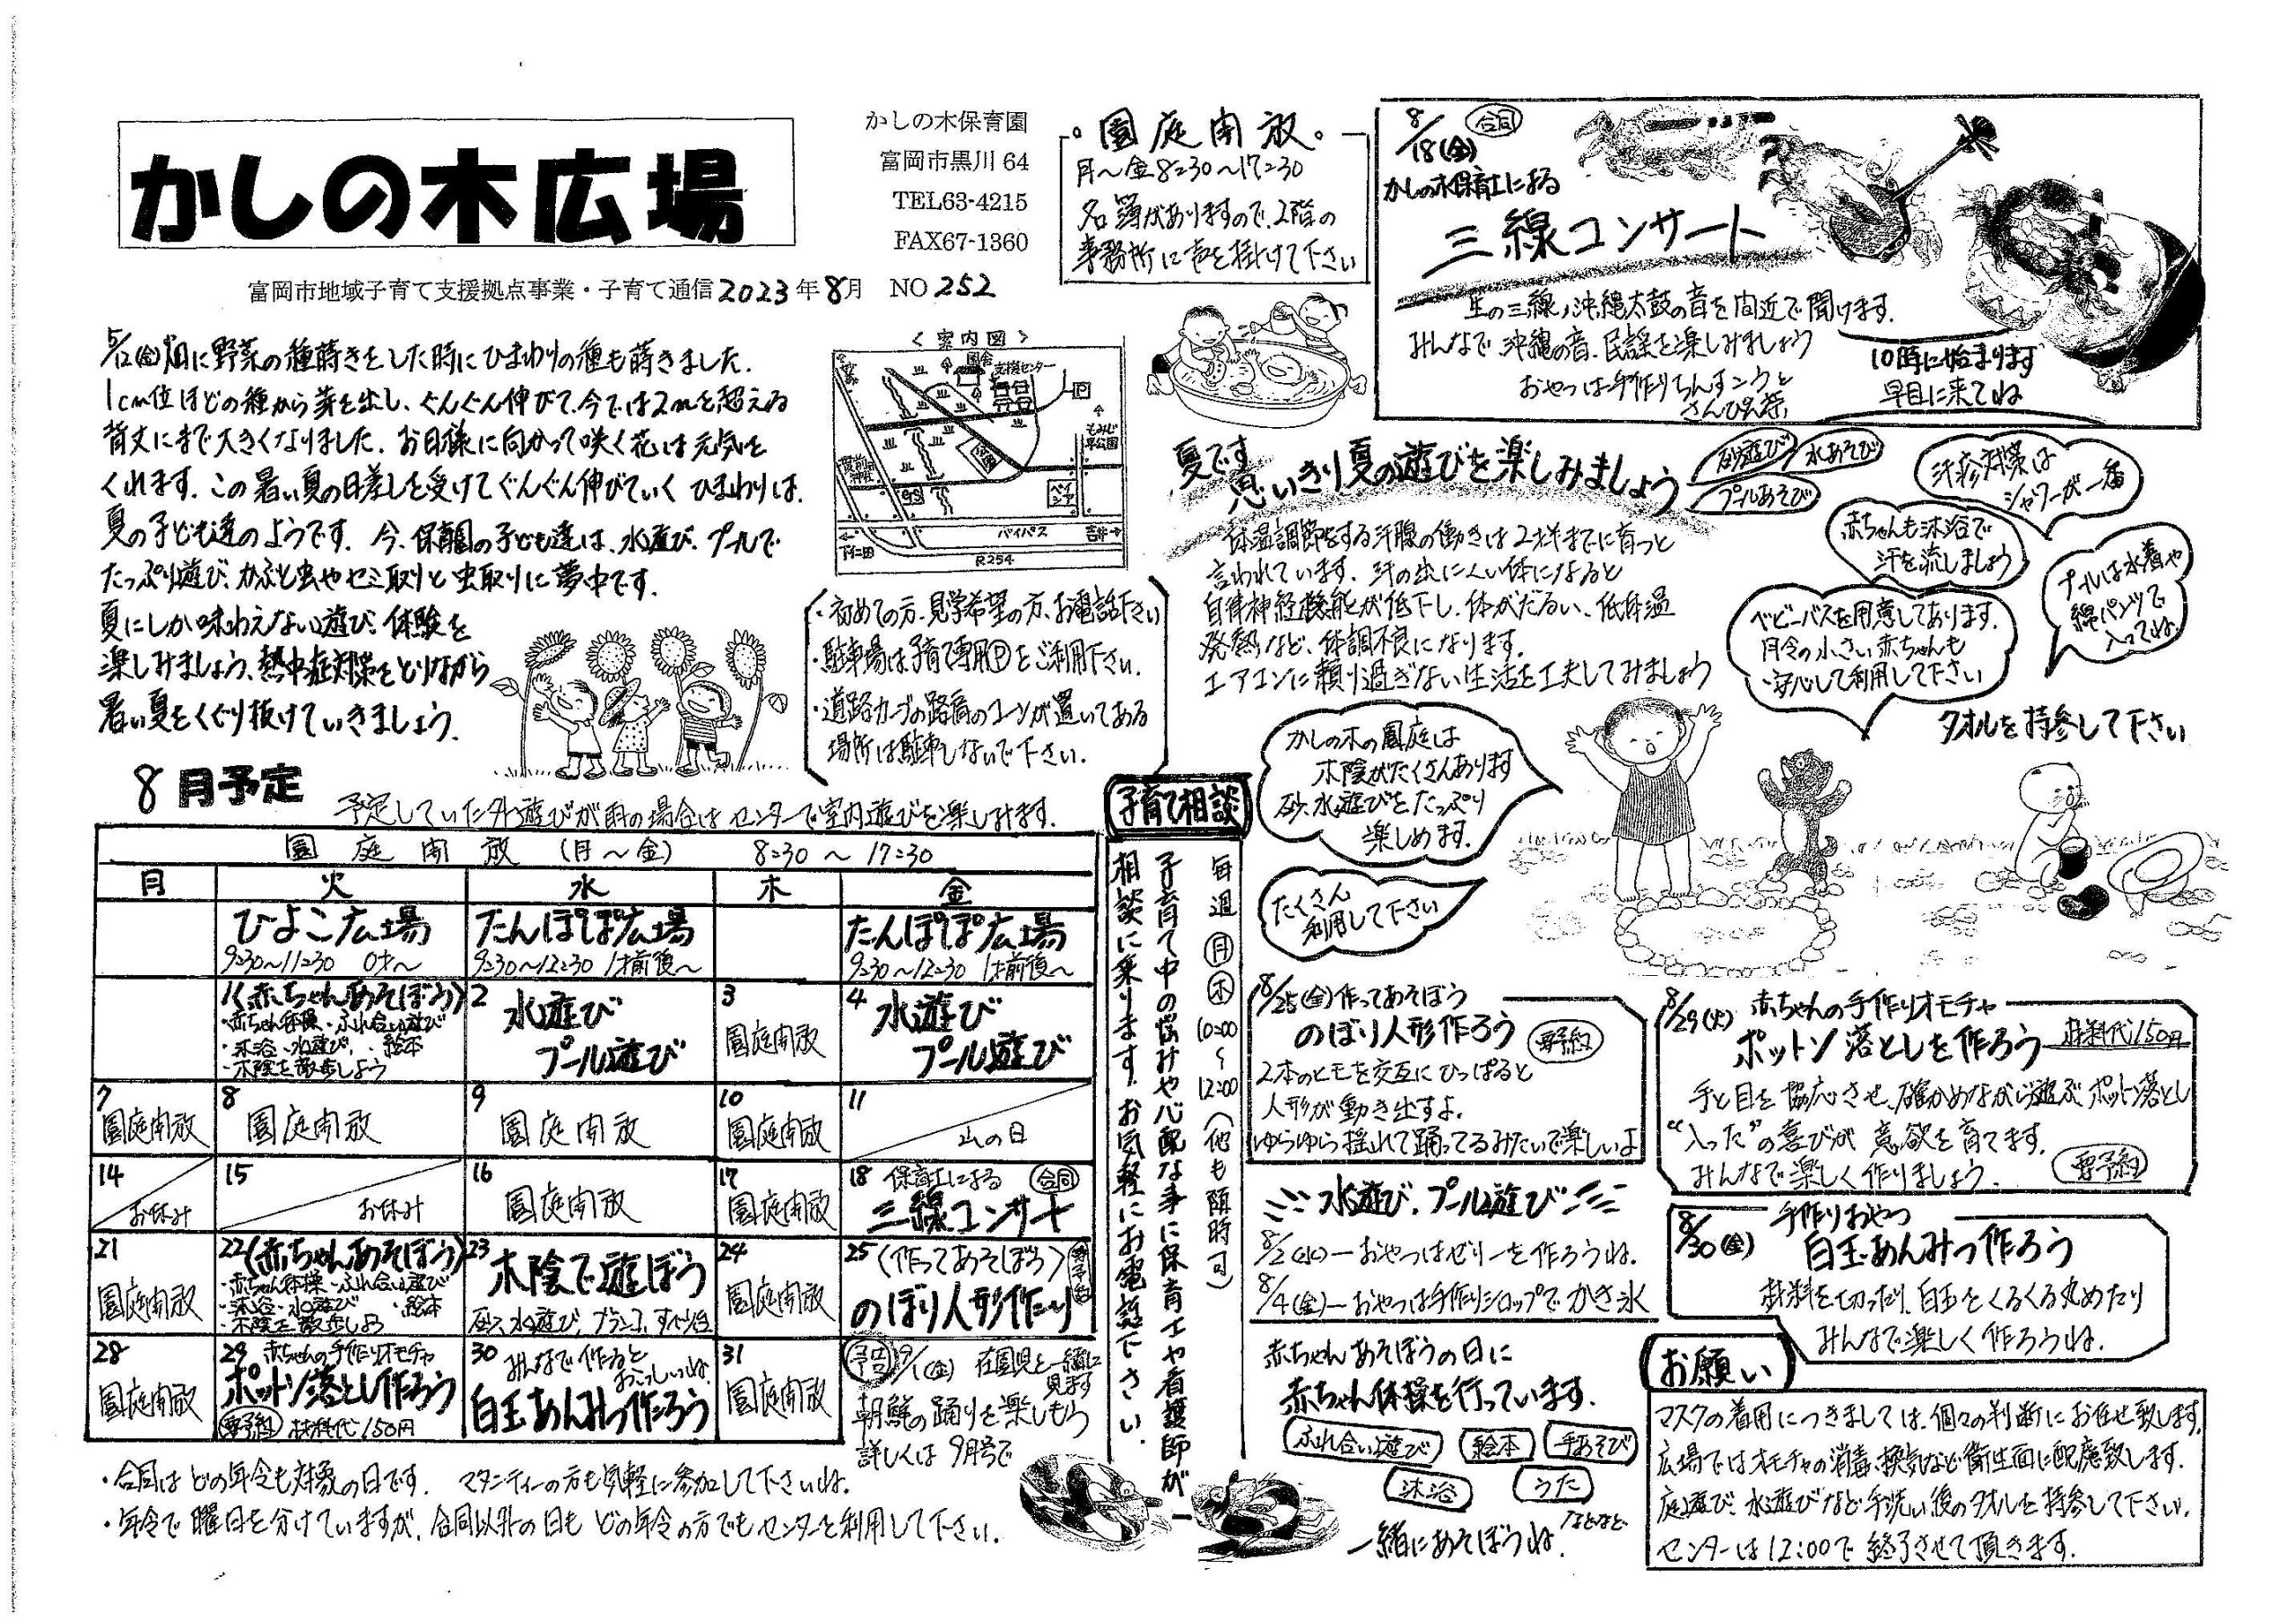 かしの木広場
かしの木保育園
富岡市黒川 64
TEL63-4215
FAX67-1360
富岡市地域子育て支援拠点事業・子育て通信 2023年 8月 NO 252
5/12(金)畑に野菜の種蒔きをした時にひまわりの種も蒔きました.
1cm位ほどの種から芽を出し、ぐんぐん伸びて今では2mを超える
背丈にまで大きくなりました. お日様に向かって咲く花は元気を
くれます. この暑い夏の日差しを受けてぐんぐん伸びていくひまわりは、
夏の子ども達のようです. 今、保育園の子ども達は、水遊び、プールで
たっぷり遊び、かぶと虫やセミ取りと虫取りに夢中です.
夏にしか味わえない遊び、体験を
楽しみましょう、熱中症対策をとりながら
暑い夏をくぐり抜けていきましょう.
<案内図>
園舎
支援センター
もみじ平公園
貫前神社
GS
ベイシア
バイパス
下仁田
吉井
R254
・初めての方、見学希望の方、お電話下さい
・駐車場は子育て専用Ⓟをご利用下さい.
・道路カーブの路肩のコーンが置いてある
場所は駐車しないで下さい.
園庭開放
月〜金 8:30〜17:30
名簿がありますので、2階の
事務所に声を掛けて下さい
8/18(金) 合同
かしの木保育士による
三線コンサート
生の三線、沖縄太鼓の音を間近で聞けます.
みんなで沖縄の音、民謡を楽しみましょう
おやつは手作りちんすこうと
さんぴん茶、
10時に始まります
早目に来てね
夏です
思いきり夏の遊びを楽しみましょう
砂遊び
水あそび
プールあそび
体温調節をする汗腺の働きは2才半までに育つと
言われています. 汗の出にくい体になると
自律神経機能が低下し、体がだるい、低体温
発熱など、体調不良になります.
エアコンに頼り過ぎない生活を工夫してみましょう
汗疹対策は
シャワーが一番
赤ちゃんも沐浴で
汗を流しましょう
プールは水着や
綿パンツで
入ってね
ベビーバスを用意してあります.
月令の小さい赤ちゃんも
安心して利用して下さい
タオルを持参して下さい
かしの木の園庭は
木陰がたくさんあります
砂、水遊びをたっぷり
楽しめます.
たくさん
利用して下さい
8月予定
予定していた外遊びが雨の場合はセンターで室内遊びを楽しみます.
園庭開放 (月〜金) 8:30〜17:30
月 火 水 木 金
ひよこ広場
9:30〜11:30 0才〜
たんぽぽ広場
9:30〜12:30 1才前後〜
たんぽぽ広場
9:30〜12:30 1才前後〜
1 (赤ちゃんあそぼう)
・赤ちゃん体操・ふれ合い遊び
・沐浴・水遊び ・絵本
・木陰を散歩しよう
2 水遊び
プール遊び
3 園庭開放
4 水遊び
プール遊び
7 園庭開放
8 園庭開放
9 園庭開放
10 園庭開放
11 山の日
14 お休み
15 お休み
16 園庭開放
17 園庭開放
18 保育士による 合同
三線コンサート
21 園庭開放
22 (赤ちゃんあそぼう)
・赤ちゃん体操・ふれ合い遊び
・沐浴・水遊び ・絵本
・木陰を散歩しよう
23 木陰で遊ぼう
砂、水遊び、ブランコ、すべり台
24 園庭開放
25 (作ってあそぼう) 要予約
のぼり人形作り
28 園庭開放
29 赤ちゃんの手作りオモチャ
ポットン落とし作ろう
要予約 材料代150円
30 みんなで作ると
おいしいね
白玉あんみつ作ろう
31 園庭開放
予告 9/1(金) 在園児と一緒に
見ます
朝鮮の踊りを楽しもう
詳しくは9月号で
・合同はどの年令も対象の日です. マタニティーの方も気軽に参加して下さいね.
・年令で曜日を分けていますが、合同以外の日もどの年令の方でもセンターを利用して下さい.
子育て相談
毎週 月 木 10:00〜12:00 (他も随時可)
子育て中の悩みや心配な事に保育士や看護師が
相談に乗ります. お気軽にお電話下さい.
8/25(金)作ってあそぼう
のぼり人形作ろう 要予約
2本のヒモを交互にひっぱると
人形が動き出すよ.
ゆらゆら揺れて踊ってるみたいで楽しいよ
8/29(火) 赤ちゃんの手作りオモチャ
ポットン落としを作ろう 材料代150円
手と目を協応させ、確かめながら遊ぶポットン落とし
“入った”の喜びが意欲を育てます.
みんなで楽しく作りましょう. 要予約
水遊び、プール遊び
8/2(水)ーおやつはゼリーを作ろうね.
8/4(金)ーおやつは手作りシロップでかき氷
8/30(金) 手作りおやつ
白玉あんみつ作ろう
材料を切ったり、白玉をくるくる丸めたり
みんなで楽しく作ろうね.
赤ちゃんあそぼうの日に
赤ちゃん体操を行っています.
ふれ合い遊び 絵本 手あそび
沐浴 うた
などなど
一緒にあそぼうね.
お願い
マスクの着用につきましては、個々の判断にお任せ致します.
広場ではオモチャの消毒、換気など衛生面に配慮致します.
庭遊び、水遊びなど手洗い後のタオルを持参して下さい.
センターは12:00で終了させて頂きます.